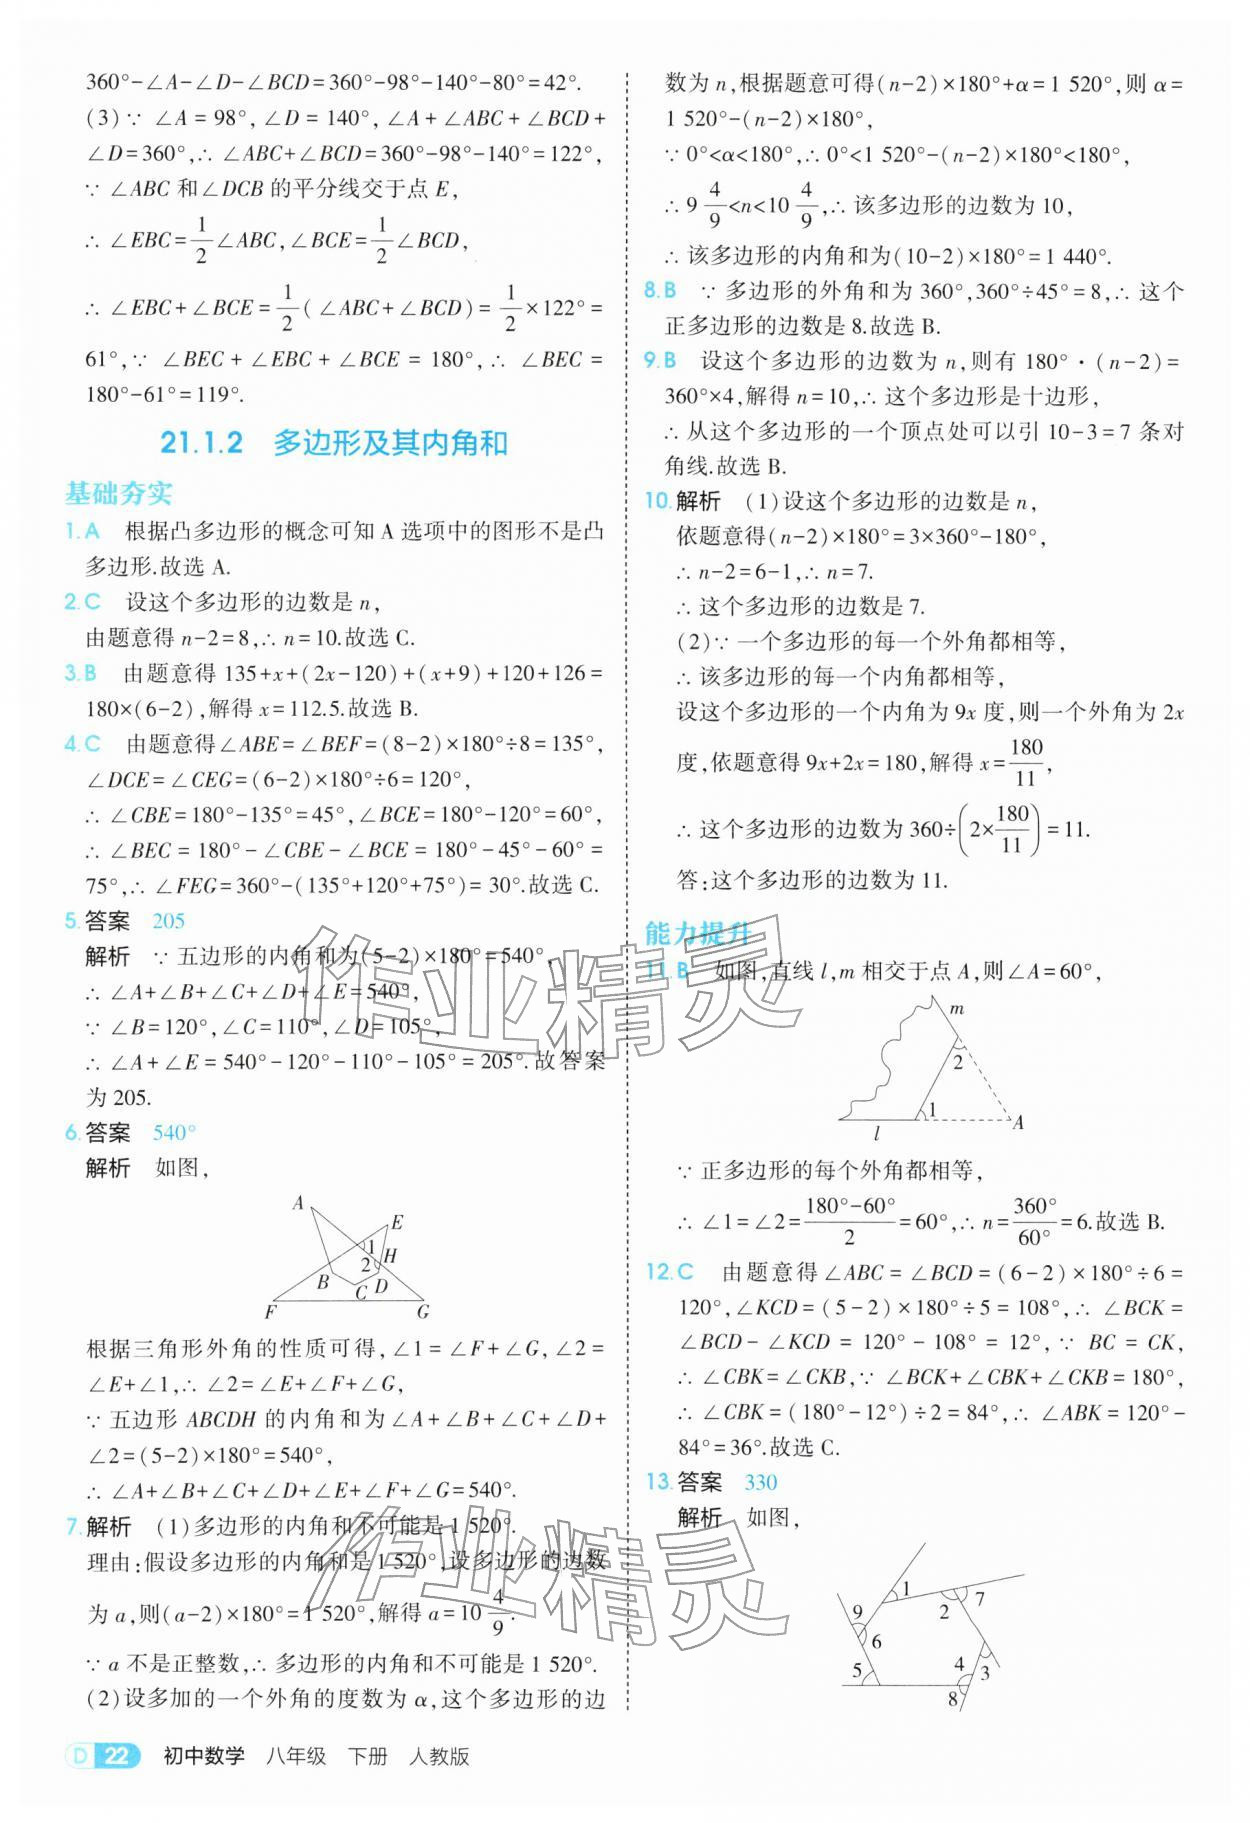 360°-∠A-∠D-∠BCD=360°-98°-140°-80°=42°.
(3)∵ ∠A=98°,∠D=140°,∠A+∠ABC+∠BCD+
∠D=360°,∴ ∠ABC+∠BCD=360°-98°-140°=122°,
∵ ∠ABC 和∠DCB 的平分线交于点 E,
∴ ∠EBC=1/2∠ABC,∠BCE=1/2∠BCD,
∴ ∠EBC+∠BCE=1/2(∠ABC+∠BCD)=1/2×122°=
61°,∵ ∠BEC+∠EBC+∠BCE=180°,∴ ∠BEC=
180°-61°=119°.
21.1.2 多边形及其内角和
基础夯实
1.A 根据凸多边形的概念可知 A 选项中的图形不是凸
多边形.故选 A.
2.C 设这个多边形的边数是 n,
由题意得 n-2=8,∴ n=10.故选 C.
3.B 由题意得 135+x+(2x-120)+(x+9)+120+126=
180×(6-2),解得 x=112.5.故选 B.
4.C 由题意得∠ABE=∠BEF=(8-2)×180°÷8=135°,
∠DCE=∠CEG=(6-2)×180°÷6=120°,
∴ ∠CBE=180°-135°=45°,∠BCE=180°-120°=60°,
∴ ∠BEC=180°-∠CBE-∠BCE=180°-45°-60°=
75°,∴ ∠FEG=360°-(135°+120°+75°)=30°.故选 C.
5.答案 205
解析 ∵ 五边形的内角和为(5-2)×180°=540°,
∴ ∠A+∠B+∠C+∠D+∠E=540°,
∵ ∠B=120°,∠C=110°,∠D=105°,
∴ ∠A+∠E=540°-120°-110°-105°=205°.故答案
为 205.
6.答案 540°
解析 如图,
A
E
1
2 H
B
C D
F G
根据三角形外角的性质可得,∠1=∠F+∠G,∠2=
∠E+∠1,∴ ∠2=∠E+∠F+∠G,
∵ 五边形 ABCDH 的内角和为∠A+∠B+∠C+∠D+
∠2=(5-2)×180°=540°,
∴ ∠A+∠B+∠C+∠D+∠E+∠F+∠G=540°.
7.解析 (1)多边形的内角和不可能是 1 520°.
理由:假设多边形的内角和是 1 520°,设多边形的边数
为 a,则(a-2)×180°=1 520°,解得 a=10 4/9.
∵ a 不是正整数,∴ 多边形的内角和不可能是 1 520°.
(2)设多加的一个外角的度数为 α,这个多边形的边
数为 n,根据题意可得(n-2)×180°+α=1 520°,则 α=
1 520°-(n-2)×180°,
∵ 0°<α<180°,∴ 0°<1 520°-(n-2)×180°<180°,
∴ 9 4/9<n<10 4/9,∴ 该多边形的边数为 10,
∴ 该多边形的内角和为(10-2)×180°=1 440°.
8.B ∵ 多边形的外角和为 360°,360°÷45°=8,∴ 这个
正多边形的边数是 8.故选 B.
9.B 设这个多边形的边数为 n,则有 180°·(n-2)=
360°×4,解得 n=10,∴ 这个多边形是十边形,
∴ 从这个多边形的一个顶点处可以引 10-3=7 条对
角线.故选 B.
10.解析 (1)设这个多边形的边数是 n,
依题意得(n-2)×180°=3×360°-180°,
∴ n-2=6-1,∴ n=7.
∴ 这个多边形的边数是 7.
(2)∵ 一个多边形的每一个外角都相等,
∴ 该多边形的每一个内角都相等,
设这个多边形的一个内角为 9x 度,则一个外角为 2x
度,依题意得 9x+2x=180,解得 x=180/11,
∴ 这个多边形的边数为 360÷(2×180/11)=11.
答:这个多边形的边数为 11.
能力提升
11.B 如图,直线 l,m 相交于点 A,则∠A=60°,
m
2
1
A
l
∵ 正多边形的每个外角都相等,
∴ ∠1=∠2=(180°-60°)/2=60°,∴ n=360°/60°=6.故选 B.
12.C 由题意得∠ABC=∠BCD=(6-2)×180°÷6=
120°,∠KCD=(5-2)×180°÷5=108°,∴ ∠BCK=
∠BCD-∠KCD=120°-108°=12°,∵ BC=CK,
∴ ∠CBK=∠CKB,∵ ∠BCK+∠CBK+∠CKB=180°,
∴ ∠CBK=(180°-12°)÷2=84°,∴ ∠ABK=120°-
84°=36°.故选 C.
13.答案 330
解析 如图,
1
7
9 2
6
5 4 3
8
作业精灵
作业精灵
D 22 初中数学 八年级 下册 人教版